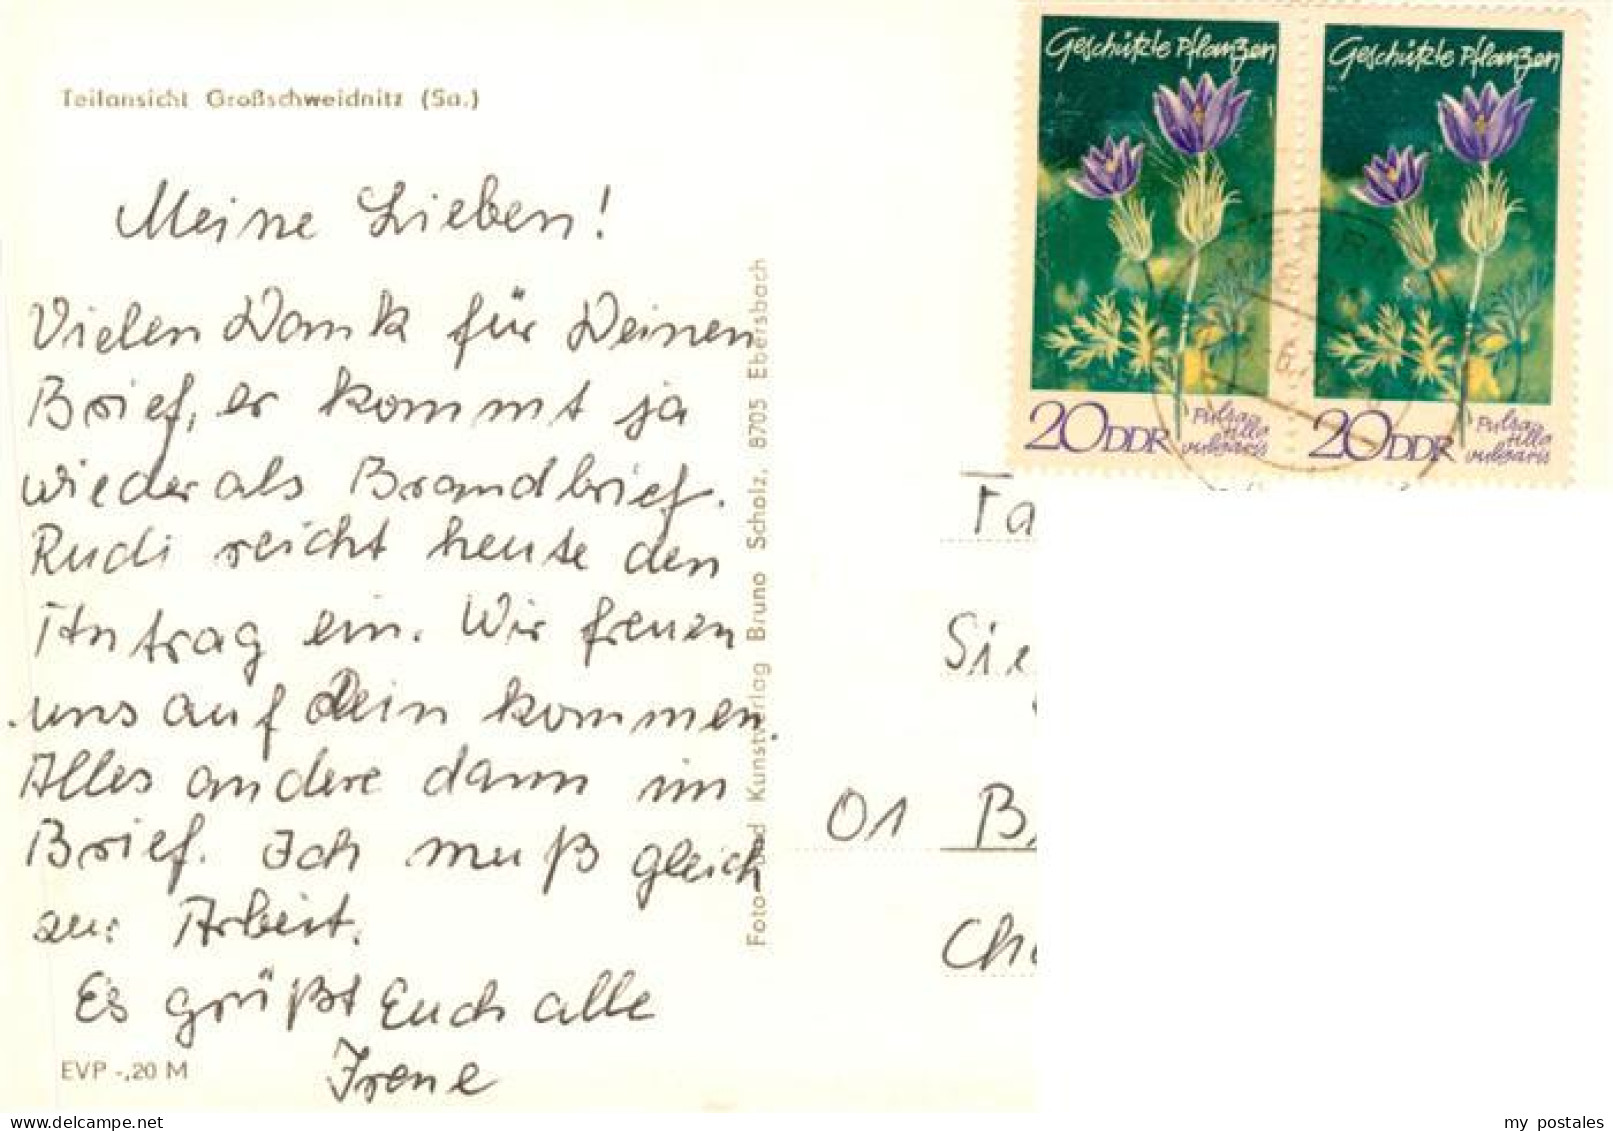 Teilansicht Großschweidnitz (Sa.)
Meine Lieben!
Vielen Dank für Deinen
Brief, er kommt ja
wieder als Brandbrief.
Rudi reicht heute den
Antrag ein. Wir freuen
uns auf Dein kommen.
Alles andere dann im
Brief. Ich muß gleich
zur Arbeit.
Es grüßt Euch alle
Irene
EVP -,20 M
Foto- und Kunstverlag Bruno Scholz, 8705 Ebersbach
Geschützte Pflanzen
20 DDR
Pulsa
tilla
vulgaris
Geschützte Pflanzen
20 DDR
Pulsa
tilla
vulgaris
Fa
Sie
01 B
Ch
delcampe.net
my postales